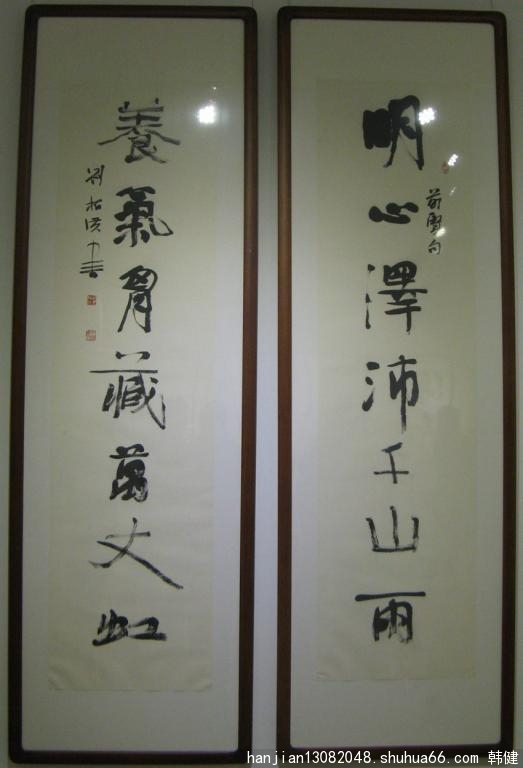 明心澤沛千山雨
前賢句
養氣胷藏萬丈虹
hanjian13082048.shuhua66.com 韩健